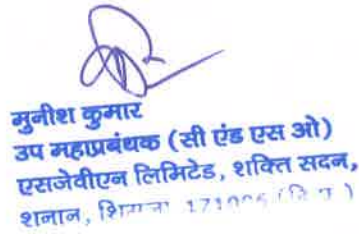 मुनीश कुमार
उप महाप्रबंधक (सी एंड एस ओ)
एसजेवीएन लिमिटेड, शक्ति सदन,
शनान, शिमला 171006 (हि प्र)